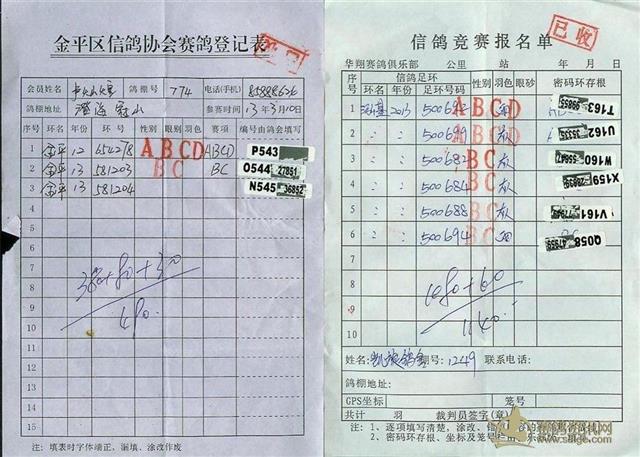 金平区信鸽协会赛鸽登记表
会员姓名 鸽棚号 774 电话(手机) 85888626
鸽棚地址 澄海 冠山 参赛时间 13年3月10日
序号 环名 年份 环号 性别 眼别 羽色 赛项 编号由鸽会填写
1 金平 12 654278 ABCD ABCD P543
2 金平 13 581203 BC BC O544 27851
3 金平 13 581204 N545 36852
4
5
6
7
8
9
10
11
12
13
14
15
480.
注：填表时字体端正，漏填、涂改作废
信鸽竞赛报名单
已收
华翔赛鸽俱乐部 公里 站 年 月 日
序号 信鸽足环 性别 羽色 眼砂 密码环存根
环名 年份 足环号码
1 2013 ABCD T163 99855
2 〃 〃 500699 ABCD 灰 U162 35335
3 〃 〃 500682 BC 灰 W160 55647
4 〃 〃 500684 BC 灰 X159
5 〃 〃 500688 BC 灰 V161
6 〃 〃 500694 BC Q058 47959
7
8
9
10
1080+60
1140.
姓名: 凯旋鸽舍 棚号: 1249 联系电话:
鸽棚地址:
GPS坐标 笼号
共计 羽 裁判员签字(章)
注：1、逐项填写清楚，涂改、
2、密码环存根、坐标及笼号